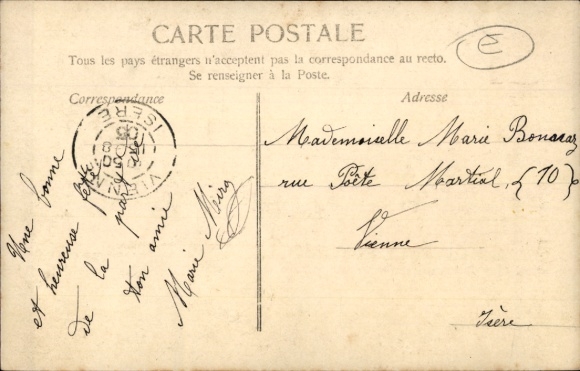 CARTE POSTALE
Tous les pays étrangers n'acceptent pas la correspondance au recto.
Se renseigner à la Poste.
Correspondance
Adresse
E
VIENNE
ISERE
Une bonne
et heureuse fête
de la part de
ton amie
Marie
Mademoiselle Marie
rue Poëte Martial, (10)
Vienne
Isère